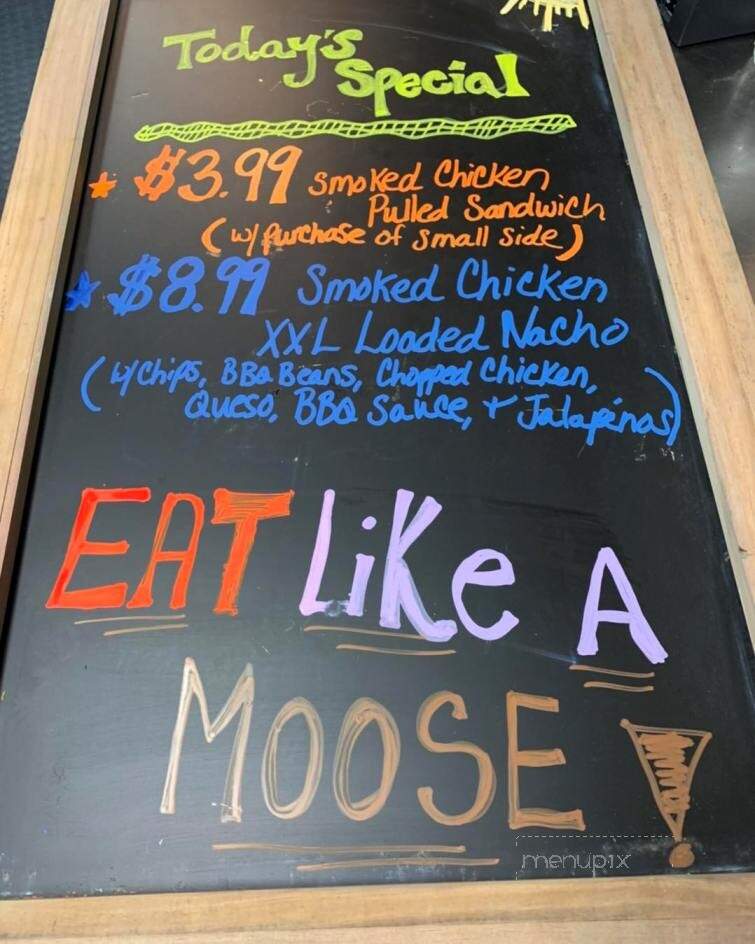 Today's
Special
$3.99 Smoked Chicken
Pulled Sandwich
(w/ purchase of small side)
$8.99 Smoked Chicken
XXL Loaded Nacho
(w/ Chips, BBQ Beans, Chopped Chicken,
Queso, BBQ Sauce, + Jalapeños)
EAT LiKe A
MOOSE!
menupix